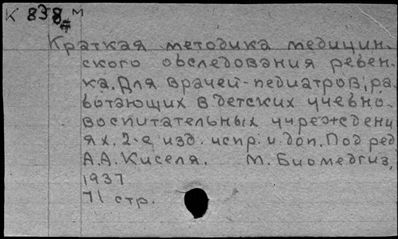 К 838 м
Краткая методика медицин-
ского обследования ребен-
ка. Для врачей-педиатров, ра-
ботающих в детских учебно-
воспитательных учреждени
ях. 2-е изд. испр. и доп. Под ред
А.А. Киселя. М. Биомедгиз,
1937
71 стр.